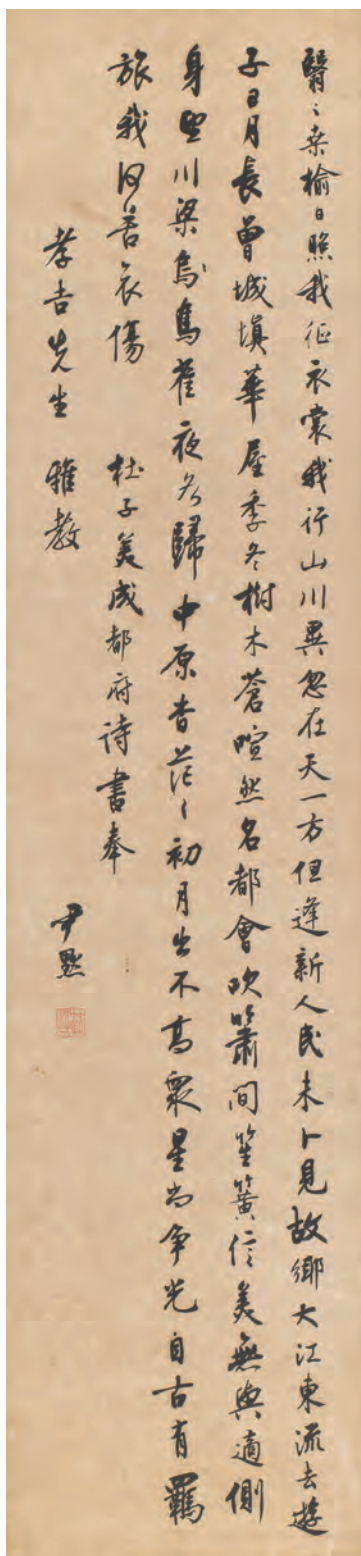 翳〻桑榆日照我征衣裳我行山川異忽在天一方但逢新人民未卜見故鄉大江東流去遊
子日月長曾城填華屋季冬樹木蒼喧然名都會吹簫間笙簧信美無與適側
身望川梁鳥雀夜各歸中原杳茫〻初月出不高衆星尚爭光自古有羈
旅我何苦哀傷 杜子美成都府詩書奉
孝吉先生 雅教 尹默